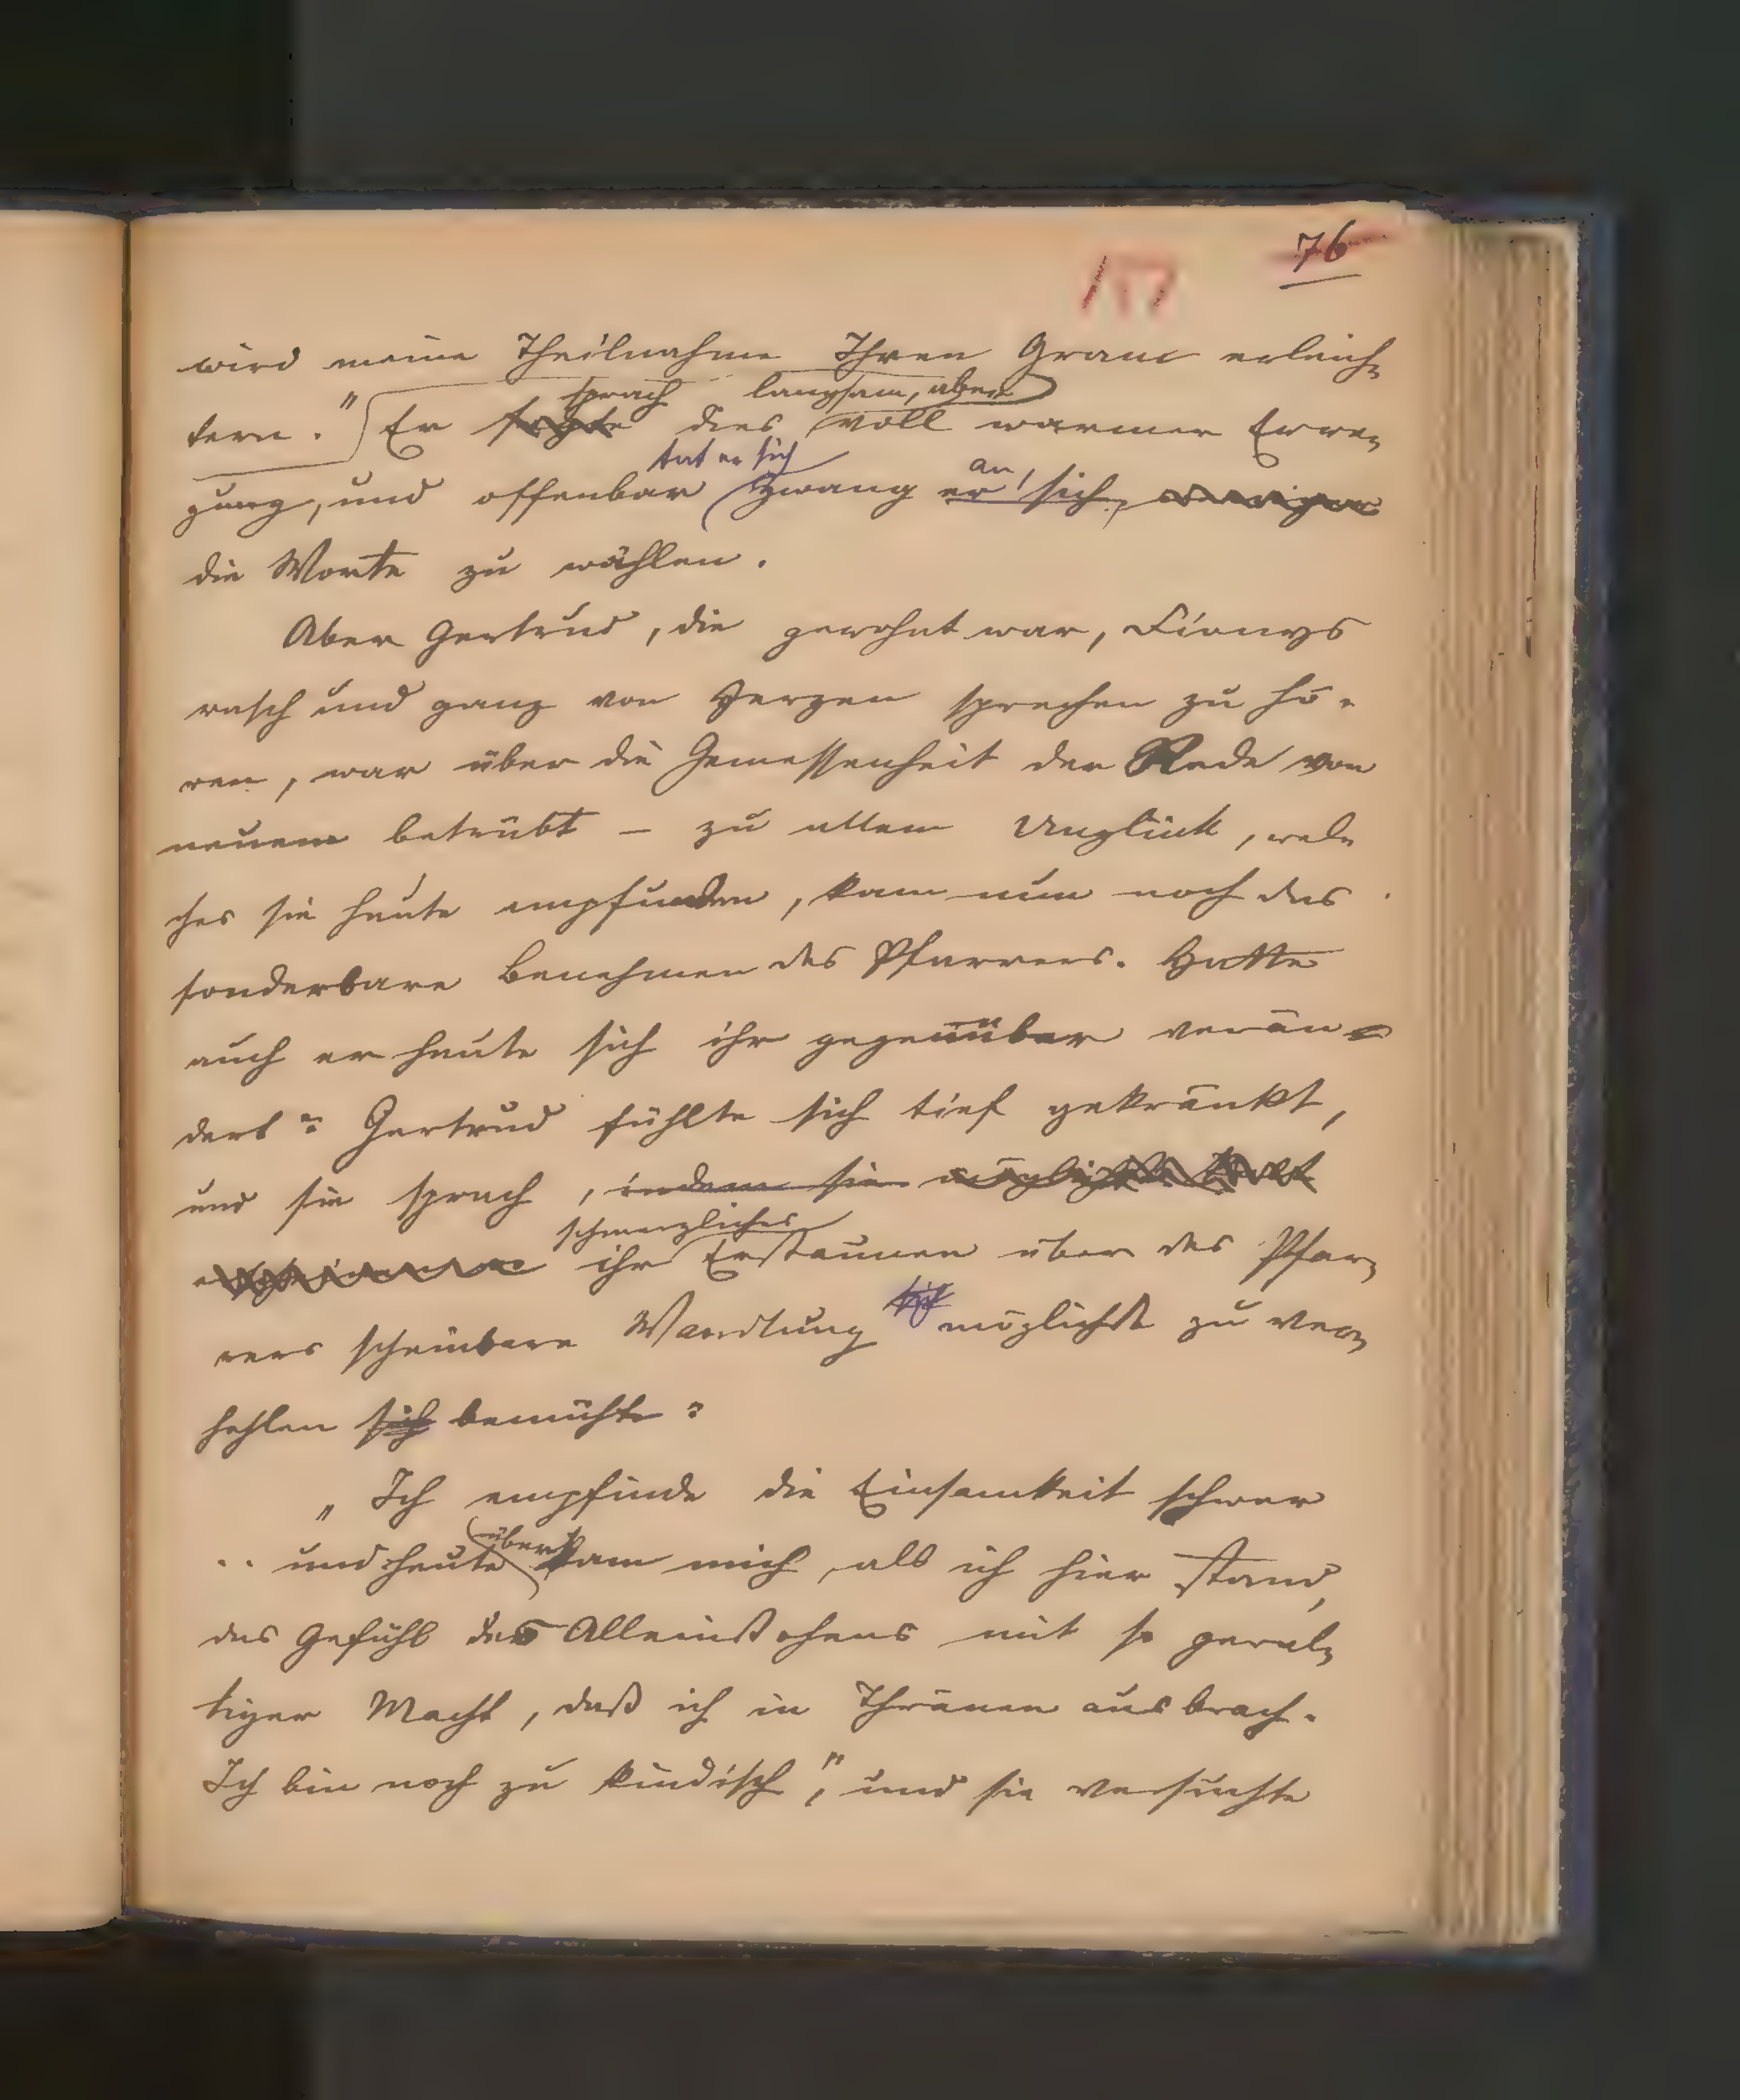 76
117
wird meine Theilnahme Ihren Gram erleich-
sprach langsam, aber
tern." Er sagte dies voll warmer Erre-
tat er sich
an
gung, und offenbar zwang er sich,
die Worte zu wählen.
Aber Gertrud, die gewohnt war, Dionys
rasch und ganz von Herzen sprechen zu hö-
ren, war über die Gemessenheit der Rede von
neuem betrübt – zu allem Unglück, wel-
ches sie heute empfunden, kam nun noch das
sonderbare Benehmen des Pfarrers. Hatte
auch er heute sich ihr gegenüber verän-
dert? Gertrud fühlte sich tief gekränkt,
und sie sprach, indem sie
schmerzliches
ihr Erstaunen über des Pfar-
rers scheinbare Wandlung möglichst zu ver-
hehlen sich bemühte:
„Ich empfinde die Einsamkeit schwer
über
.. und heute kam mich, als ich hier stand,
das Gefühl des Alleinstehens mit so gewal-
tiger Macht, daß ich in Thränen ausbrach.
Ich bin noch zu kindisch", und sie versuchte